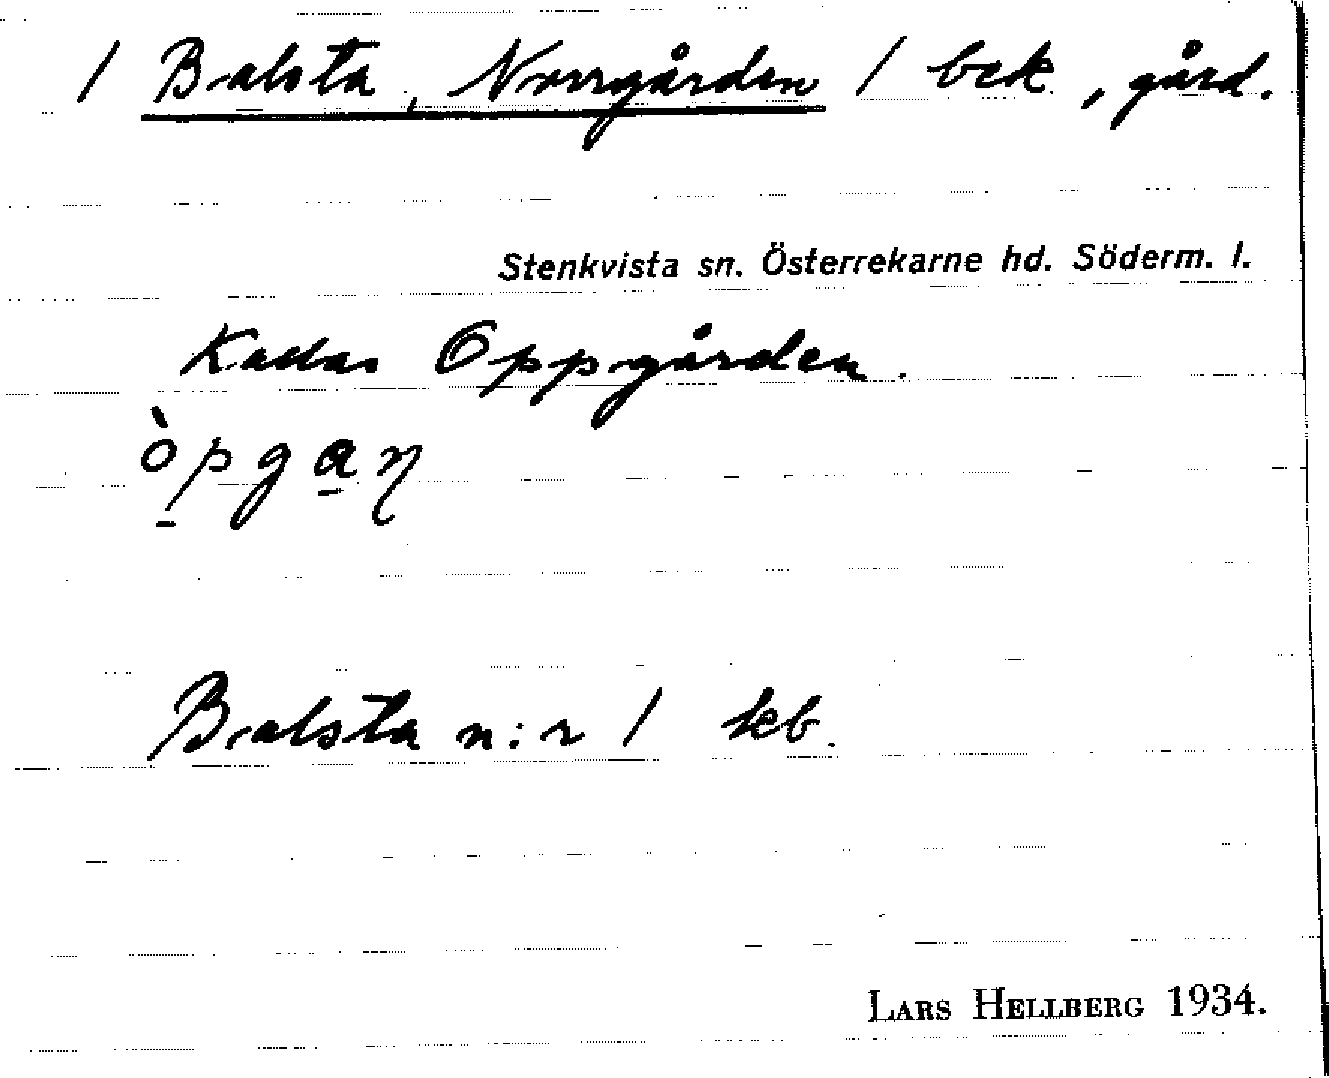 / Balsta, Norrgården / bek, gård.
Stenkvista sn. Österrekarne hd. Söderm. l.
Kallas Oppgården.
òpgaɳ
Balsta n:r 1 kb.
LARS HELLBERG 1934.